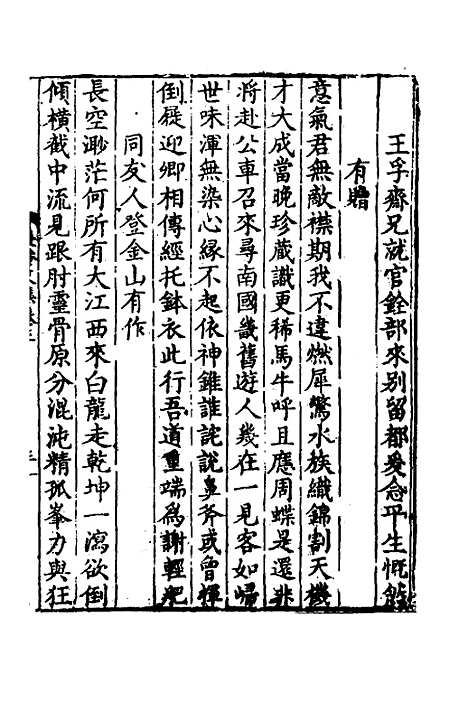 王孚齋兄就官銓部來別留都爰念平生慨然
有贈
意氣君無敵襟期我不違燃犀驚水族織錦割天機
才大成當晚珍藏識更稀馬牛呼且應周蝶是還非
將赴公車召來尋南國畿舊遊人幾在一見客如歸
世味渾無染心緣不起依神錐誰詫說鼻斧或曾揮
倒屣迎卿相傳經托鉢衣此行吾道重端為謝輕肥
同友人登金山有作
長空渺茫何所有大江西來白龍走乾坤一瀉欲倒
傾橫截中流見跟肘靈骨原分混沌精孤峯力與狂